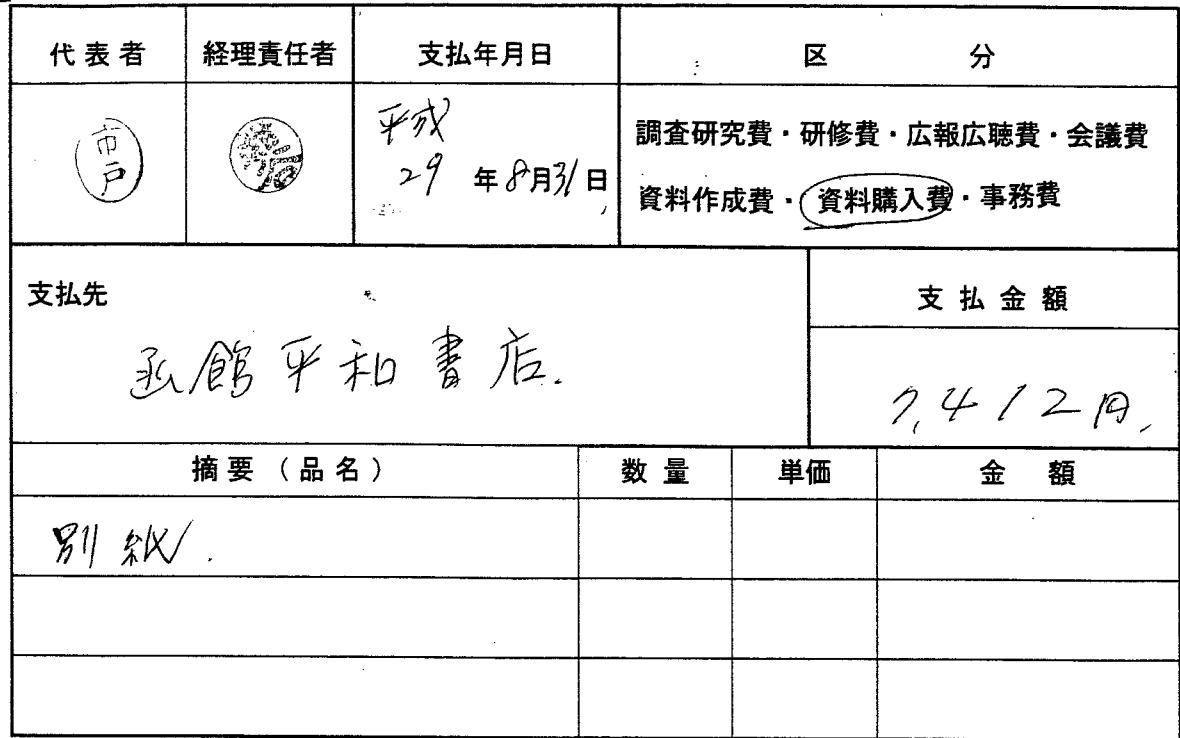 代表者 経理責任者 支払年月日 区分
市戸 平成29年8月31日
調査研究費・研修費・広報広聴費・会議費
資料作成費・資料購入費・事務費
支払先 支払金額
函館平和書店. 7,412円,
摘要（品名） 数量 単価 金額
別紙.